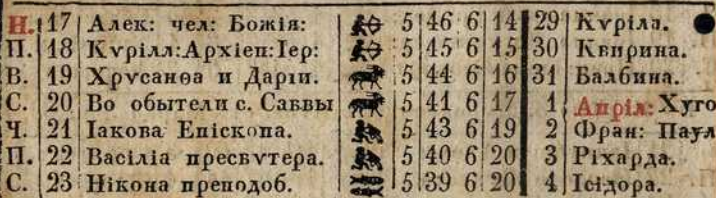 Н. 17 Алек: чел: Божія: 5 46 6 14 29 Кѵріла.
П. 18 Кѵрілл:Архіеп:Іер: 5 45 6 15 30 Квирина.
В. 19 Хрѵсанѳа и Даріи. 5 44 6 16 31 Балбина.
С. 20 Во обытели с. Саввы 5 41 6 17 1 Апріл: Хуго
Ч. 21 Іакова Епіскопа. 5 43 6 19 2 Фран: Паул
П. 22 Васіліа пресвѵтера. 5 40 6 20 3 Ріхарда.
С. 23 Нікона преподоб. 5 39 6 20 4 Ісідора.